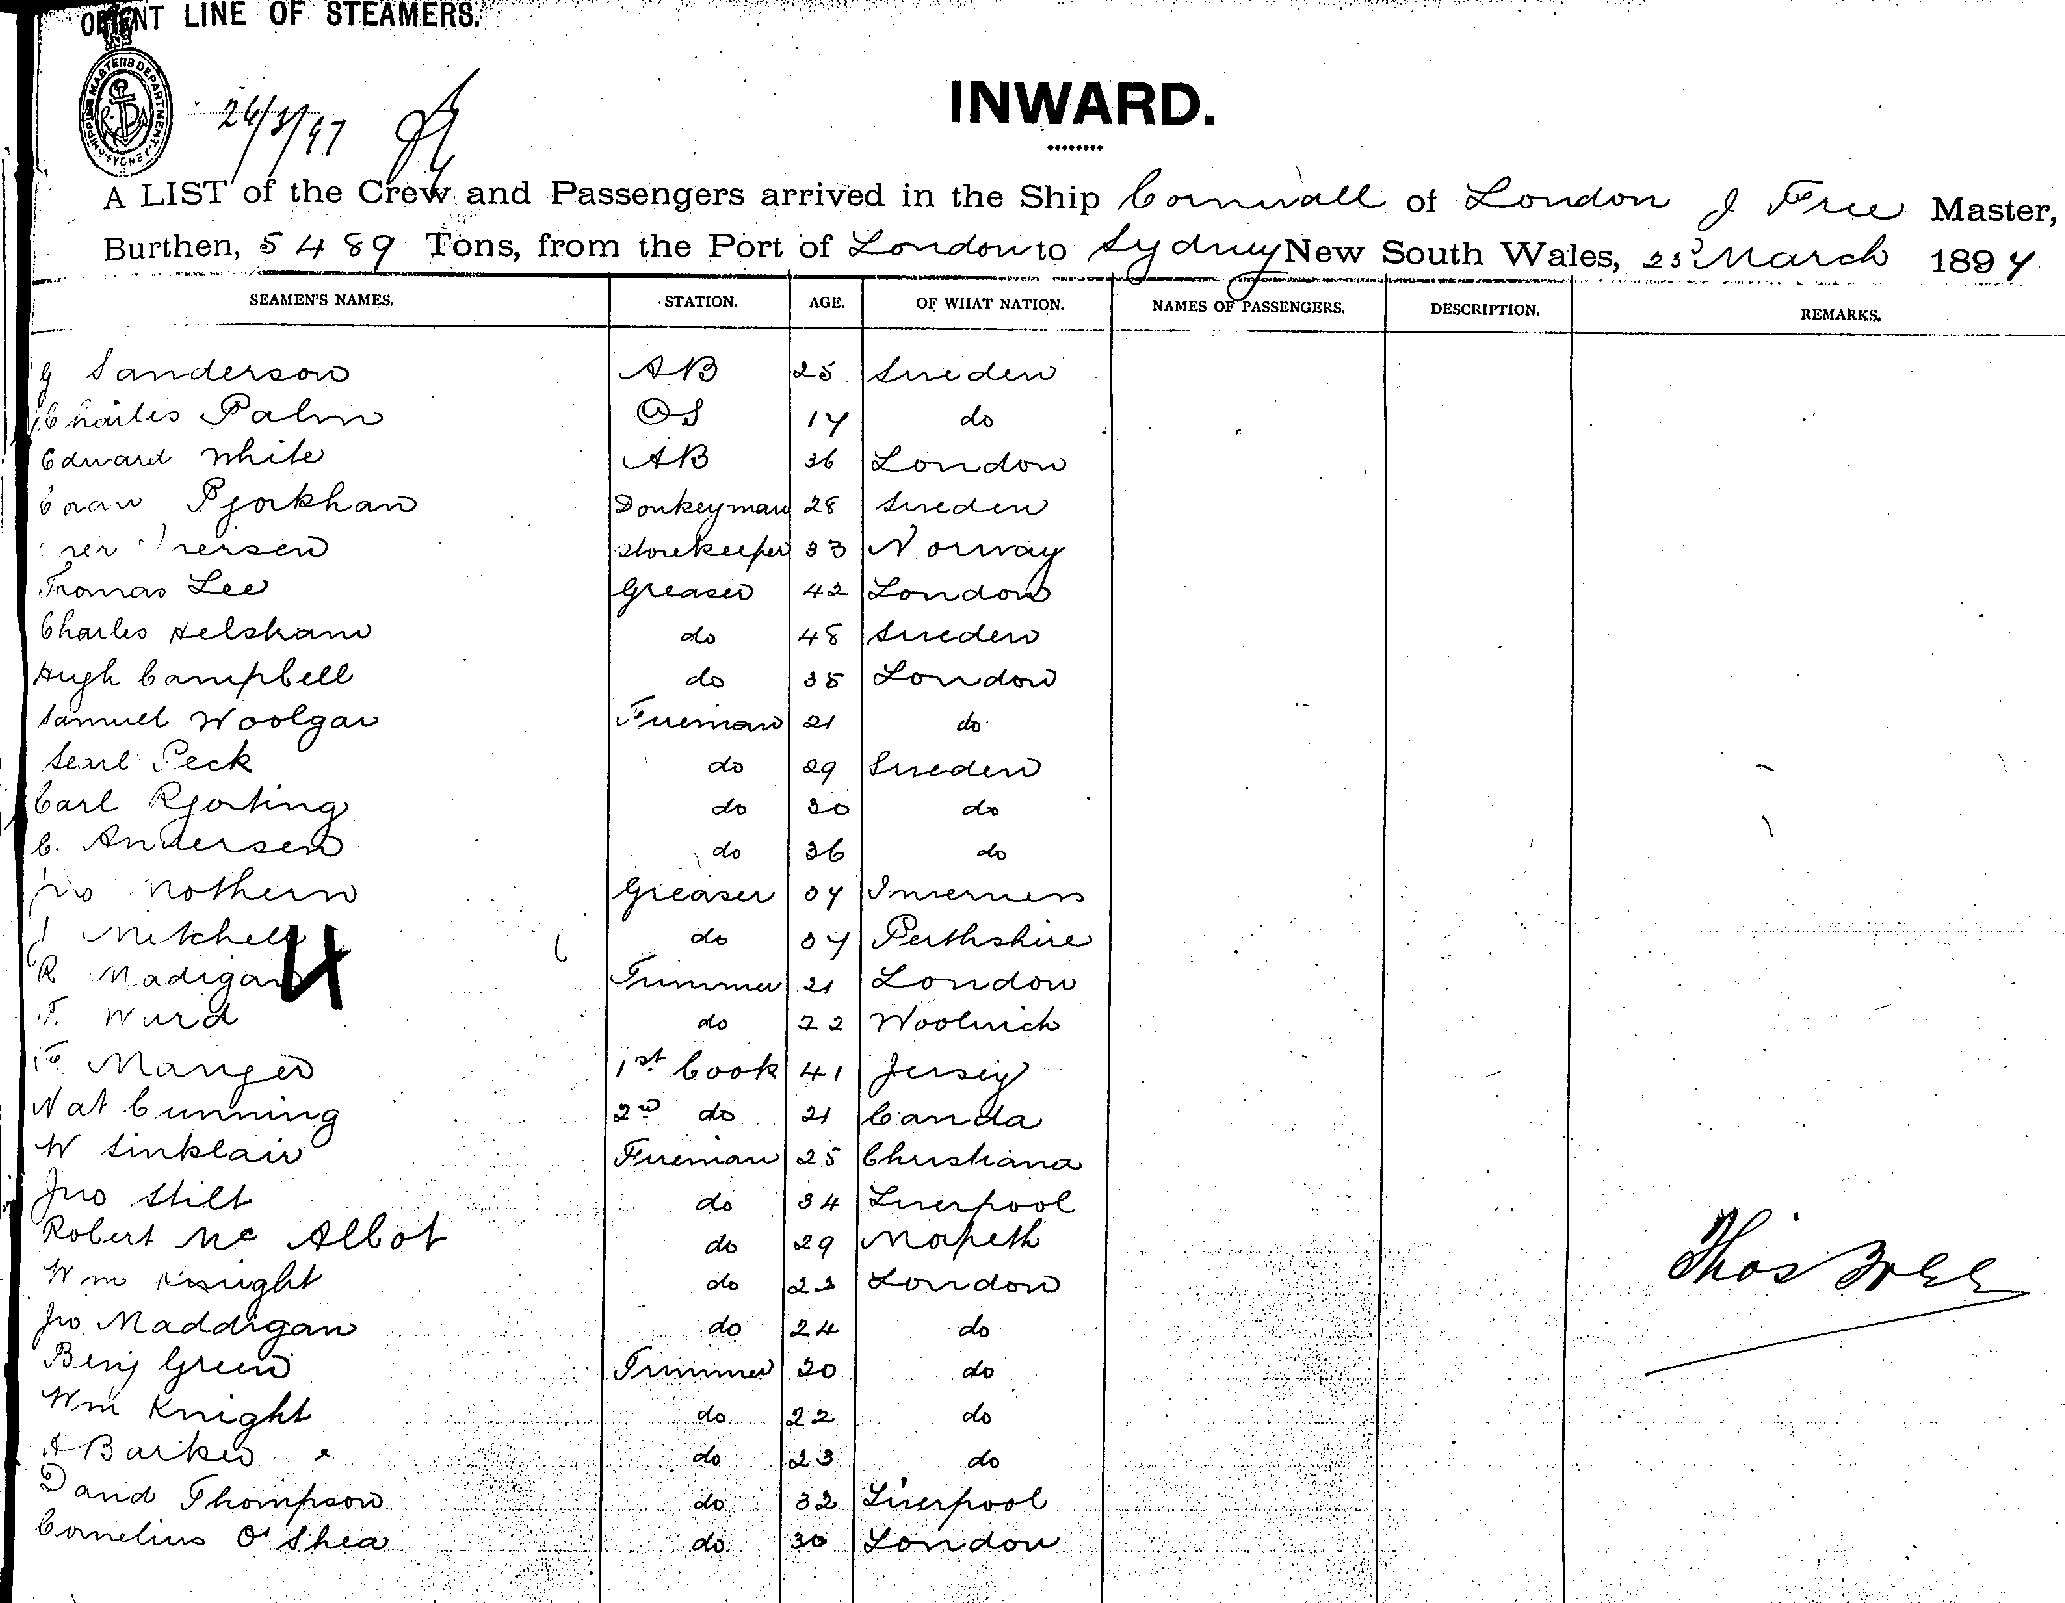 ORIENT LINE OF STEAMERS.
26/3/97
INWARD.
A LIST of the Crew and Passengers arrived in the Ship Cornwall of London J Free Master,
Burthen, 5489 Tons, from the Port of London to Sydney New South Wales, 25 March 1897
SEAMEN'S NAMES. STATION. AGE. OF WHAT NATION. NAMES OF PASSENGERS. DESCRIPTION. REMARKS.
G Sanderson AB 25 Sweden
Charles Palm OS 17 do
Edward White AB 36 London
Pjorkhan Donkeyman 28 Sweden
Storekeeper 33 Norway
Thomas Lee Greaser 42 London
Charles Helsham do 48 Sweden
Hugh Campbell do 35 London
Samuel Woolgar Fireman 21 do
Peck do 29 Sweden
Carl Rjorting do 30 do
C. Andersen do 36 do
Jno Nothern Greaser 37 Inverness
J Mitchell do 37 Perthshire
R Madigan Trimmer 21 London
4
F. Ward do 22 Woolwich
F. Manger 1st Cook 41 Jersey
Nat Cunning 2nd do 21 Canda
W Sinklair Fireman 25 Christiana
Jno Stilt do 34 Liverpool
Robert Mc Albot do 29 Morpeth
Wm Knight do 23 London
Thos Free
Jno Maddigan do 24 do
Benj Green Trimmer 20 do
Wm Knight do 22 do
A Barker do 23 do
David Thompson do 32 Liverpool
Cornelius O'Shea do 30 London